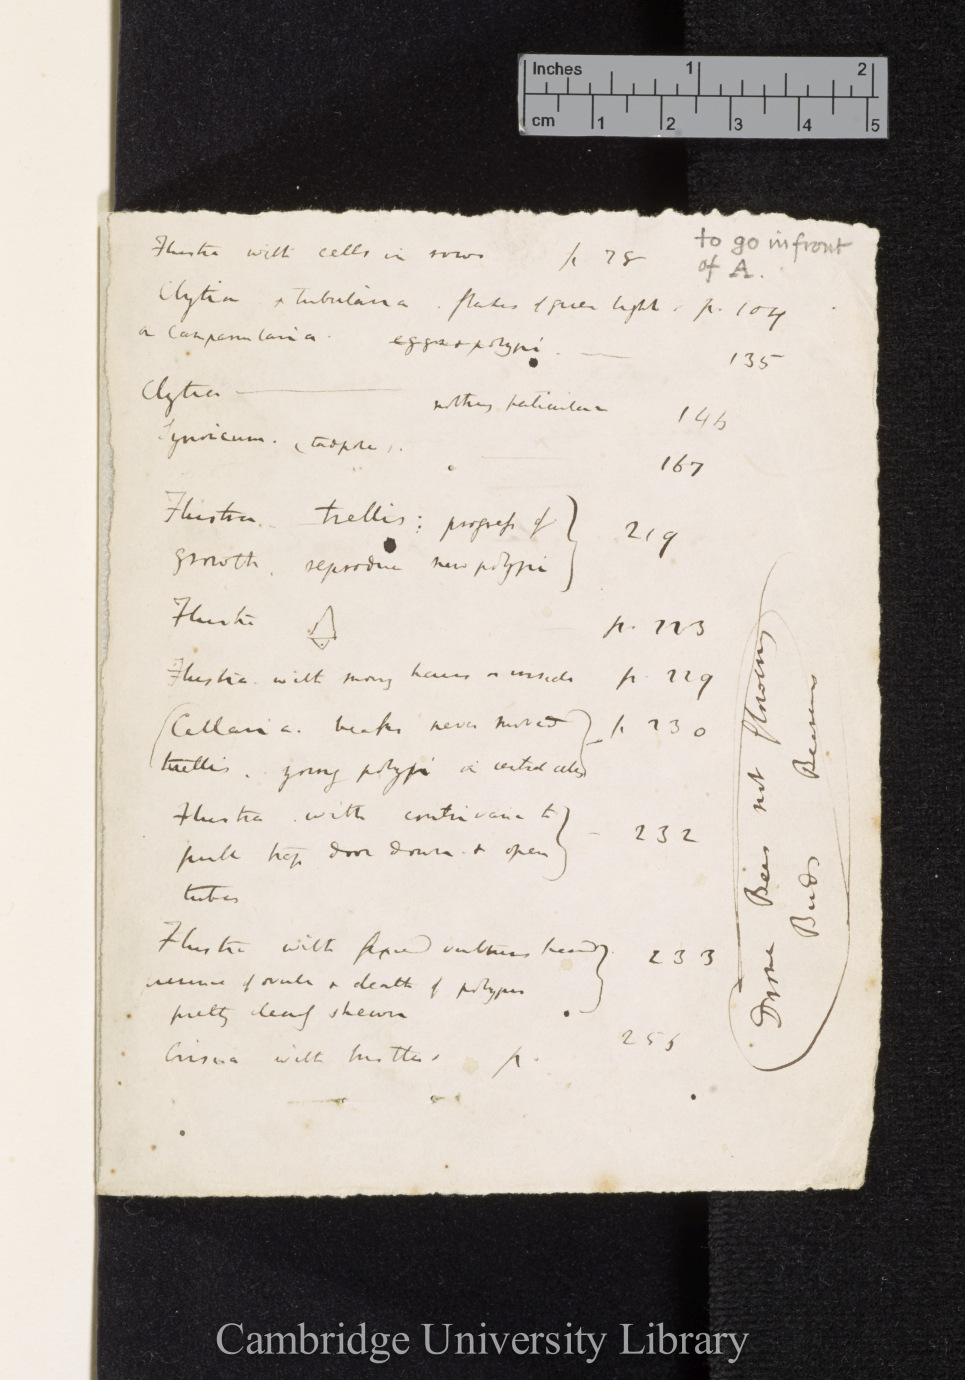 Inches 1 2
cm 1 2 3 4 5
to go in front
of A.
Flustra with cells in rows p 78
Clytia & tubularia. flakes of green light. p. 104
a Campanularia. eggs & polypi. — 135
Clytia — nothing particular 146
Synoicum. (tadpole). 167
Flustra. trellis: progress of
growth. reproduce new polypi } 219
Flustra p. 223
Flustra. with many hairs inside p. 229
(Cellaria. beaks never moved
trellis. young polypi in central cells } p 230
Flustra with contrivance to
pull trap door down. & open } - 232
tubes
Flustra with fixed vultures heads } 233
of ovules & death of polypus
pretty clearly shewn
Crisia with bristles p. 256
Drone Bees not flowering
Buds Beans
Cambridge University Library